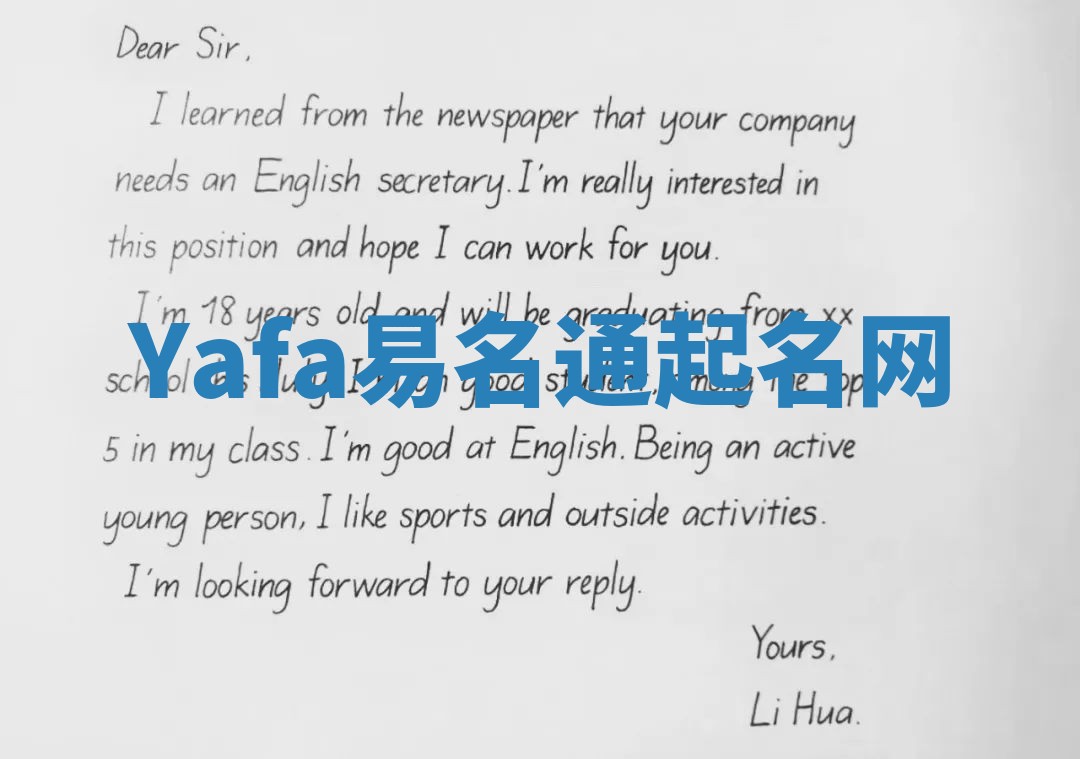 Dear Sir,
I learned from the newspaper that your company
needs an English secretary. I'm really interested in
this position and hope I can work for you.
I'm 18 years old and will be graduating from xx
Yafa易名通起名网
school this July. I good student, among the top
5 in my class. I'm good at English. Being an active
young person, I like sports and outside activities.
I'm looking forward to your reply.
Yours,
Li Hua.